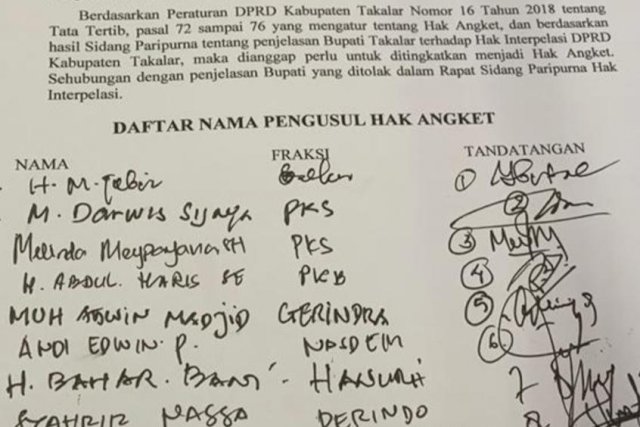 Berdasarkan Peraturan DPRD Kabupaten Takalar Nomor 16 Tahun 2018 tentang
Tata Tertib, pasal 72 sampai 76 yang mengatur tentang Hak Angket, dan berdasarkan
hasil Sidang Paripurna tentang penjelasan Bupati Takalar terhadap Hak Interpelasi DPRD
Kabupaten Takalar, maka dianggap perlu untuk ditingkatkan menjadi Hak Angket.
Sehubungan dengan penjelasan Bupati yang ditolak dalam Rapat Sidang Paripurna Hak
Interpelasi.
DAFTAR NAMA PENGUSUL HAK ANGKET
NAMA FRAKSI TANDATANGAN
H. M. Jabir 1
M. Darwis Sijaya PKS 2
Melinda SH PKS 3
H. ABDUL. HARIS SE PKB 4
MUH MADJID GERINDRA 5
ANDI EDWIN. P. NASDEM 6
H. BAHAR. HANURA 7
SYAHRIR NASSA PERINDO 8